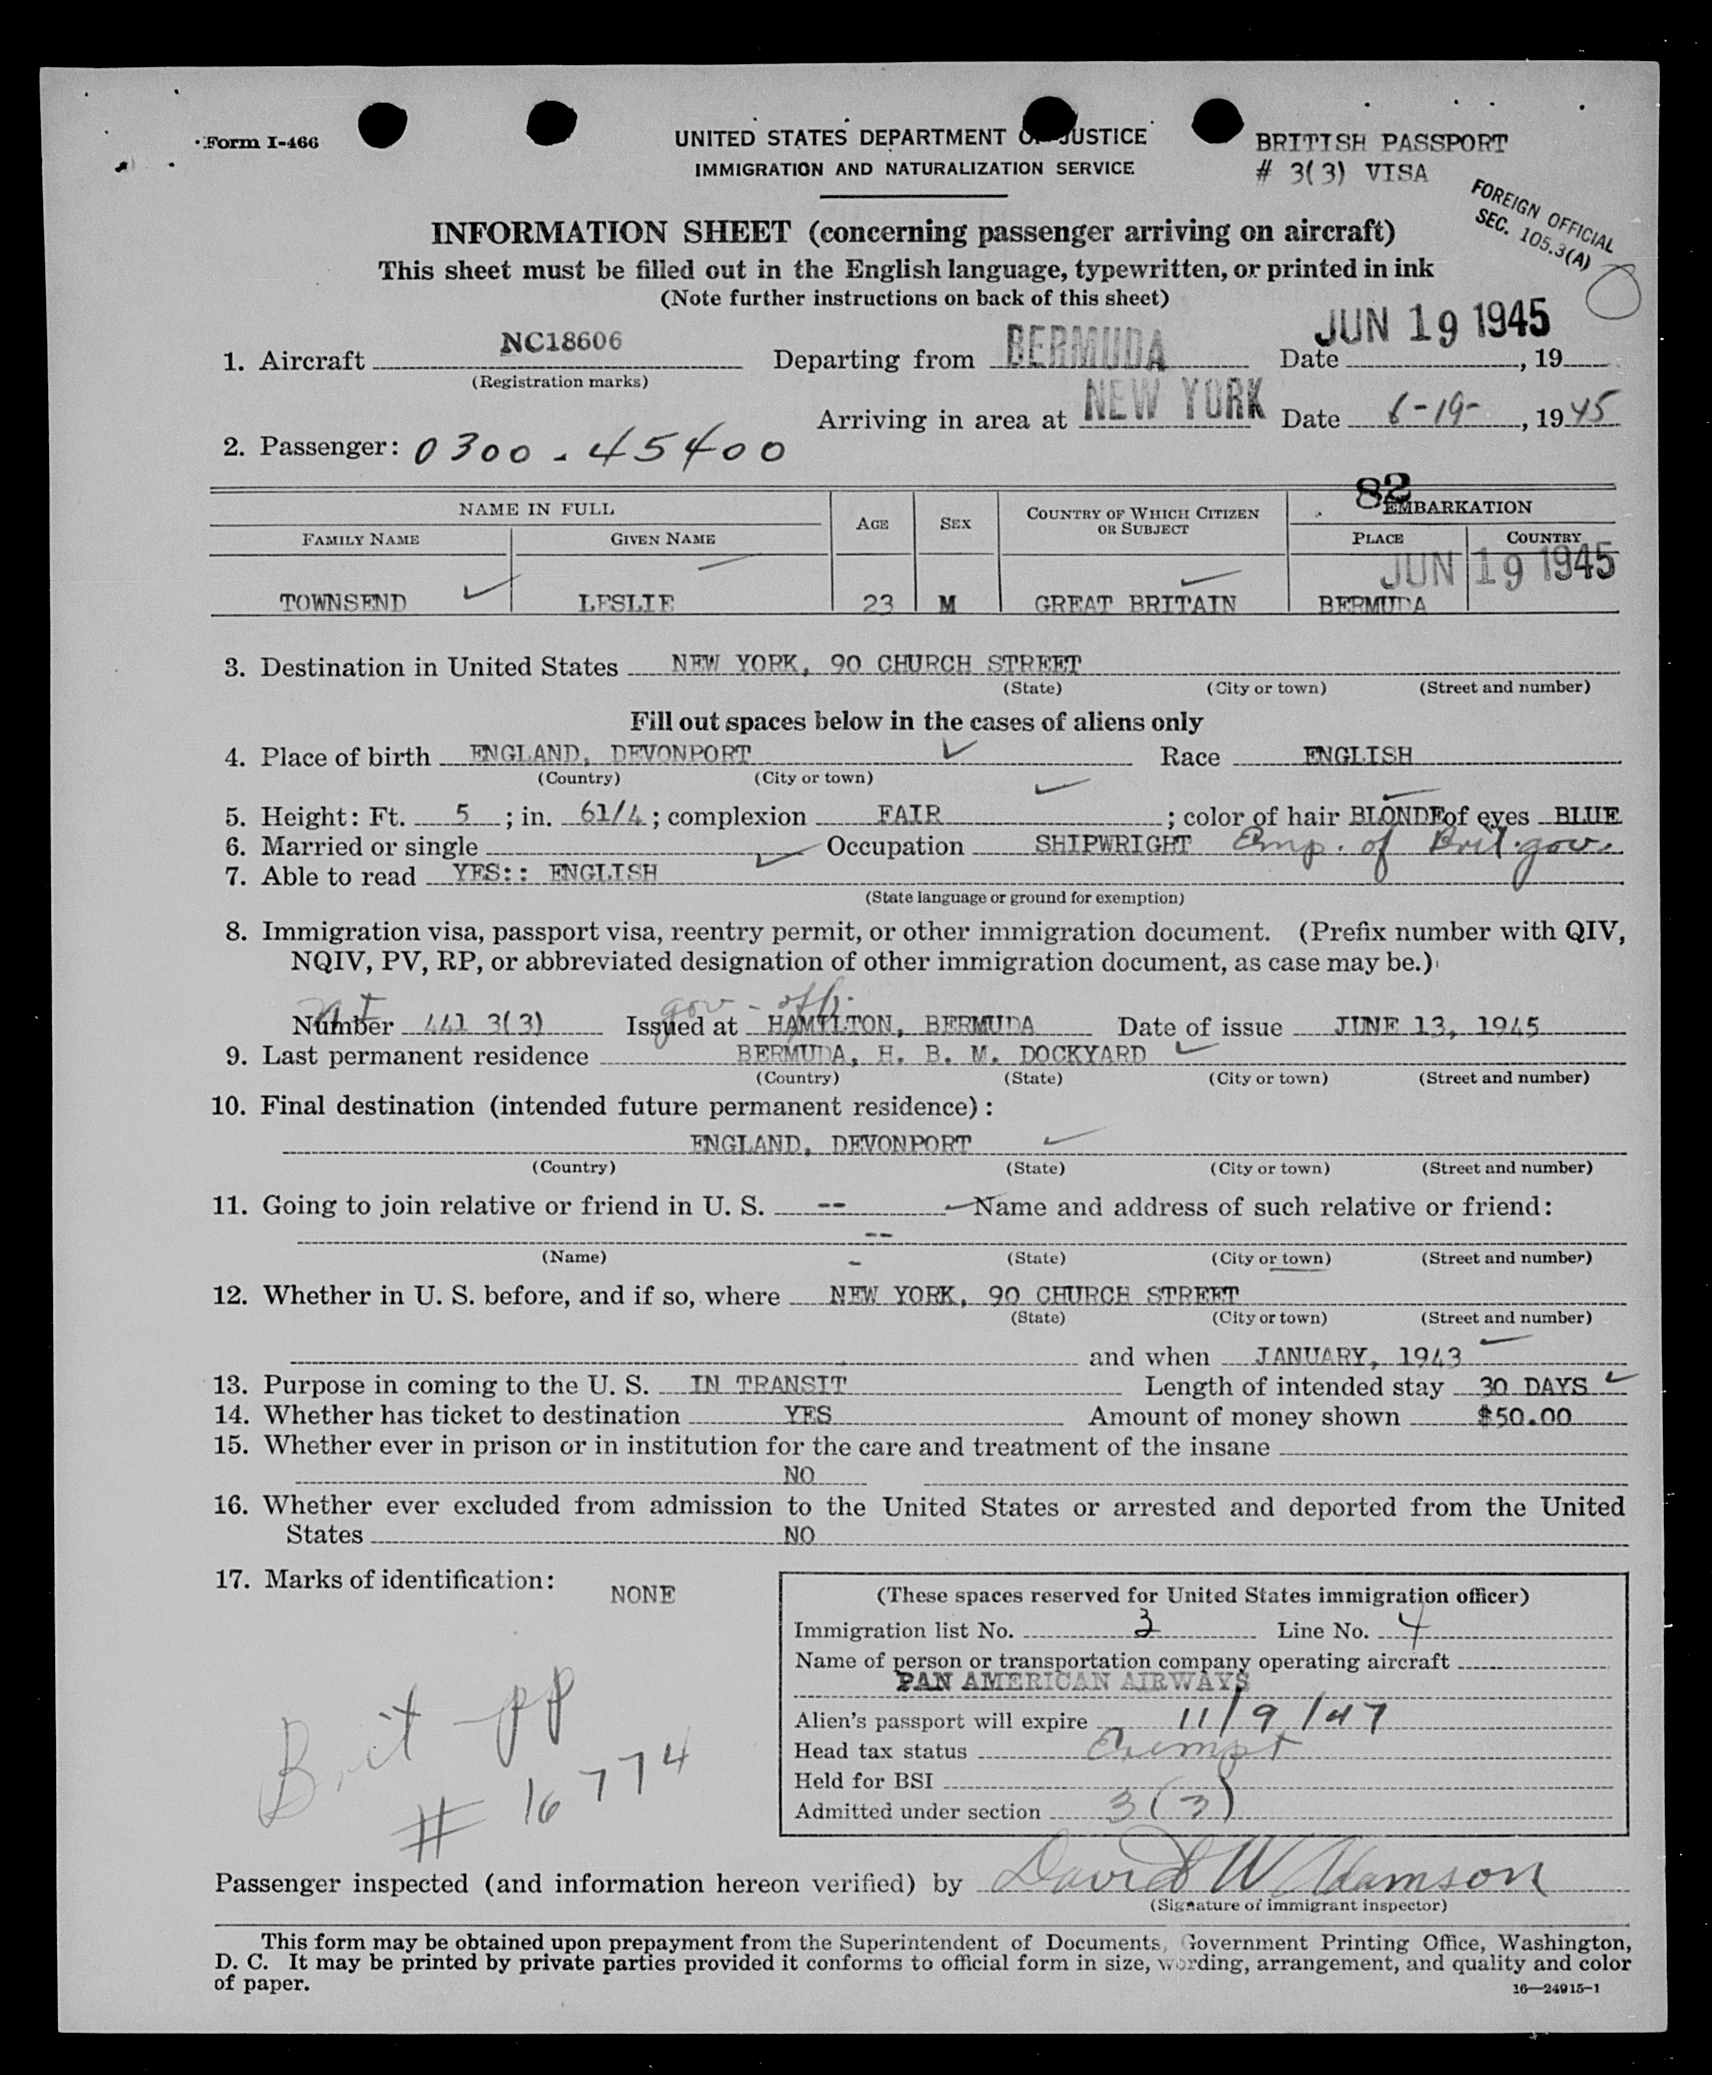 Form I-466
UNITED STATES DEPARTMENT OF JUSTICE
IMMIGRATION AND NATURALIZATION SERVICE
BRITISH PASSPORT
# 3(3) VISA
FOREIGN OFFICIAL
SEC. 105.3(A)
INFORMATION SHEET (concerning passenger arriving on aircraft)
This sheet must be filled out in the English language, typewritten, or printed in ink
(Note further instructions on back of this sheet)
1. Aircraft NC18606 Departing from BERMUDA Date JUN 19 1945, 19
(Registration marks)
Arriving in area at NEW YORK Date 6-19-, 1945
2. Passenger: 0300.45400
82
NAME IN FULL AGE SEX COUNTRY OF WHICH CITIZEN OR SUBJECT EMBARKATION
FAMILY NAME GIVEN NAME PLACE COUNTRY
JUN 19 1945
TOWNSEND LESLIE 23 M GREAT BRITAIN BERMUDA
3. Destination in United States NEW YORK, 90 CHURCH STREET
(State) (City or town) (Street and number)
Fill out spaces below in the cases of aliens only
4. Place of birth ENGLAND, DEVONPORT Race ENGLISH
(Country) (City or town)
5. Height: Ft. 5; in. 61/4; complexion FAIR; color of hair BLONDE of eyes BLUE
6. Married or single Occupation SHIPWRIGHT Emp. of Brit. gov.
7. Able to read YES:: ENGLISH
(State language or ground for exemption)
8. Immigration visa, passport visa, reentry permit, or other immigration document. (Prefix number with QIV,
NQIV, PV, RP, or abbreviated designation of other immigration document, as case may be.)
gov - off.
Number 441 3(3) Issued at HAMILTON, BERMUDA Date of issue JUNE 13, 1945
9. Last permanent residence BERMUDA, H. B. M. DOCKYARD
(Country) (State) (City or town) (Street and number)
10. Final destination (intended future permanent residence):
ENGLAND, DEVONPORT
(Country) (State) (City or town) (Street and number)
11. Going to join relative or friend in U. S. -- Name and address of such relative or friend:
--
(Name) (State) (City or town) (Street and number)
12. Whether in U. S. before, and if so, where NEW YORK, 90 CHURCH STREET
(State) (City or town) (Street and number)
and when JANUARY, 1943
13. Purpose in coming to the U. S. IN TRANSIT Length of intended stay 30 DAYS
14. Whether has ticket to destination YES Amount of money shown $50.00
15. Whether ever in prison or in institution for the care and treatment of the insane
NO
16. Whether ever excluded from admission to the United States or arrested and deported from the United
States NO
17. Marks of identification: NONE
(These spaces reserved for United States immigration officer)
Immigration list No. 3 Line No. 4
Name of person or transportation company operating aircraft
PAN AMERICAN AIRWAYS
Alien's passport will expire 11/9/47
Head tax status Exempt
Held for BSI
Admitted under section 3(3)
Brit pp
# 16774
Passenger inspected (and information hereon verified) by David W Adamson
(Signature of immigrant inspector)
This form may be obtained upon prepayment from the Superintendent of Documents, Government Printing Office, Washington,
D. C. It may be printed by private parties provided it conforms to official form in size, wording, arrangement, and quality and color
of paper.
16—24915-1